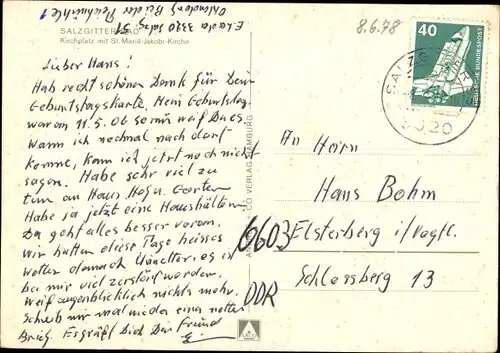 SALZGITTER-BAD
Kirchplatz mit St. Mariä-Jakobi-Kirche
3320 Salzg. 51
8.6.78
40
DEUTSCHE BUNDESPOST
SALZG
3320
Lieber Hans!
Hab recht schönen Dank für Deine
Geburtstagskarte. Mein Geburtstag
war am 11.5.
Wann ich nochmal nach dort
komme, kann ich jetzt noch nicht
sagen. Habe sehr viel zu
tun am Haus Garten
Habe ja jetzt eine Haushälterin.
Da geht alles besser voran.
Wir hatten diese Tage heisses
Wetter danach Unwetter, es ist
bei mir viel zerstört worden.
Weiß augenblicklich nichts mehr.
Schreib mir mal wieder einen netten
Brief. Es grüßt Dich Dein Freund
An Herrn
Hans Böhm
6603 Elsterberg i/Vogtl.
Schlossberg 13
DDR
VERLAG HAMBURG